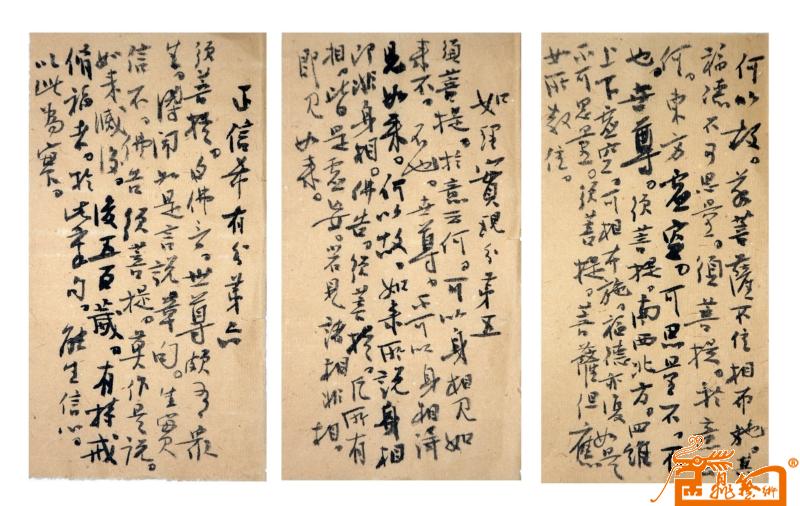 何以故。若菩薩不住相布施。其
福德不可思量。須菩提。於意
何。東方虛空。可思量不。不
也。世尊。須菩提。南西北方。四維
上下虛空。可相布施。福德亦復如是
不可思量。須菩提。菩薩但應
如所教住。
如理實現分第五
須菩提。於意云何。可以身相見如
來不。不也。世尊。不可以身相得
見如來。何以故。如來所說身相
即非身相。佛告。須菩提。凡所有
相。皆是虛妄。若見諸相非相。
即見如來。
正信希有分第六
須菩提。白佛言。世尊頗有眾
生。得聞如是言說章句。生實
信不。佛告須菩提。莫作是說。
如來滅後。後五百歲。有持戒
修福者。於此章句。能生信心。
以此為實。